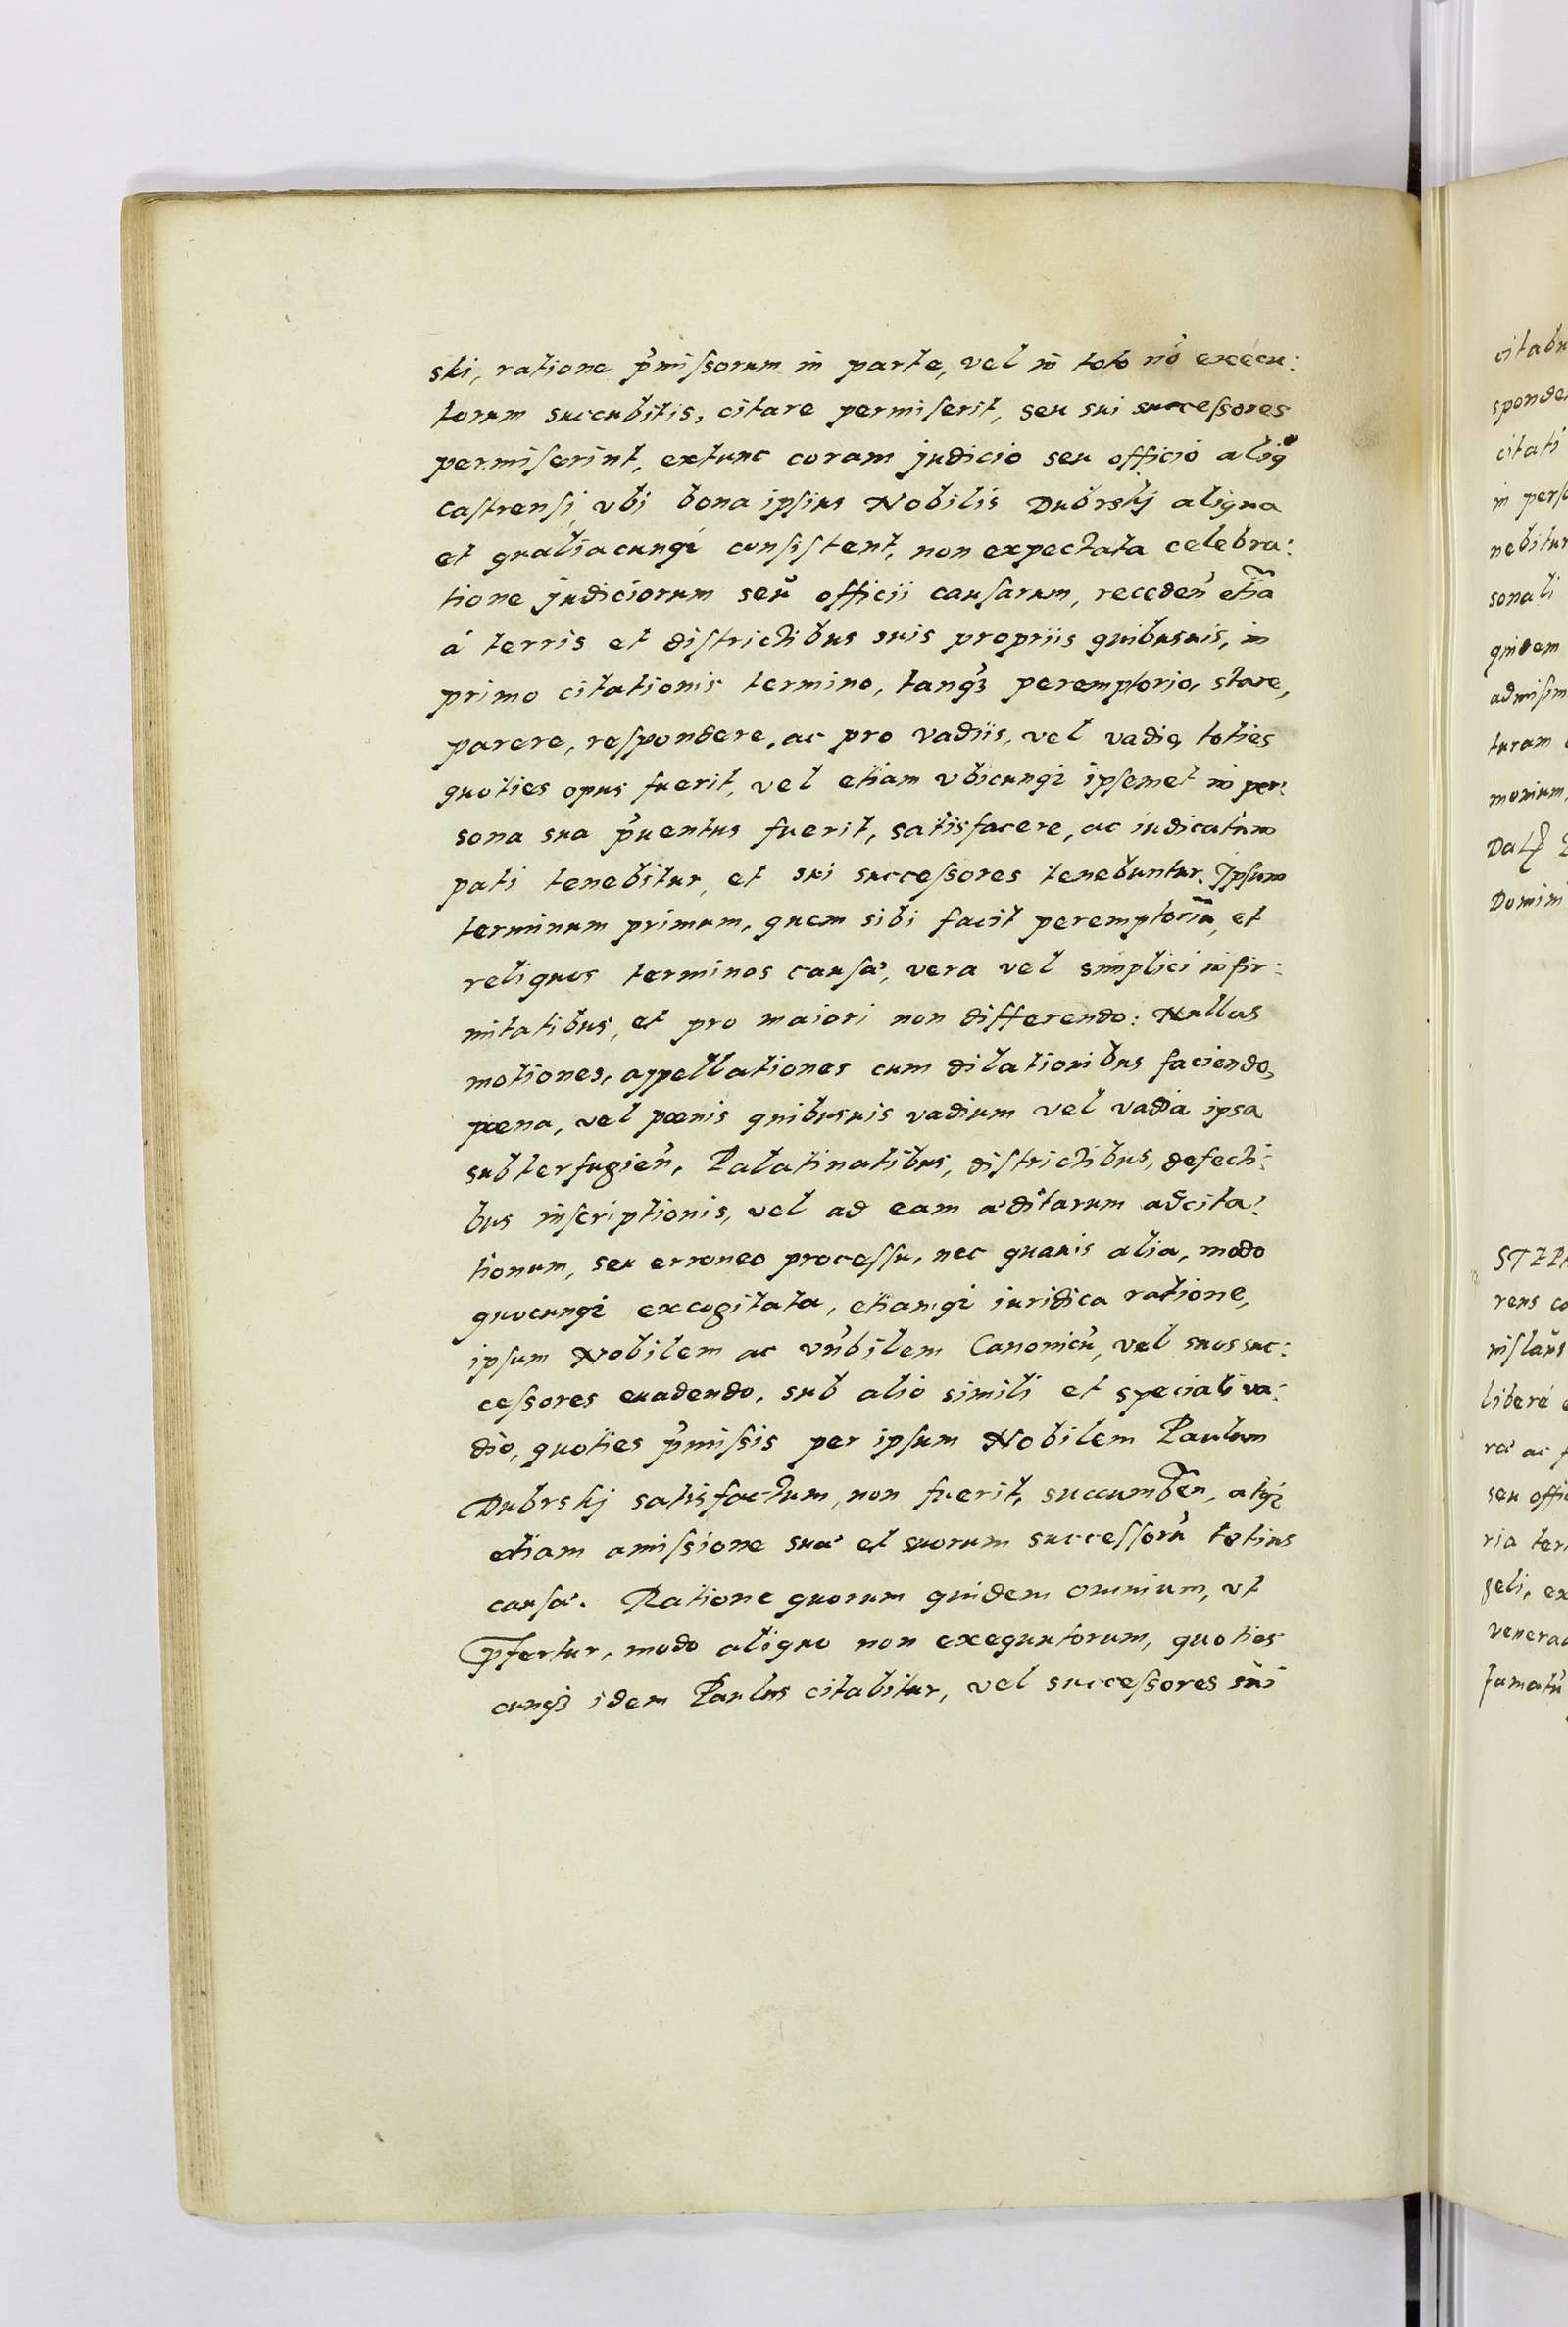 ski, ratione p̃missorum in parte, vel in toto nõ execu:
torum succubitis, citare permiserit, seu sui successores
permiserint, extunc coram judicio seu officio aliq̊
castrensi, vbi bona ipsius Nobilis Dubrskj aliqua
et qualiacunqꝫ consistent, non expectata celebra:
tione judiciorum seu officii causarum, receden̄ etiã
á terris et districtibus suis propriis quibusuis, in
primo citationis termino, tanqꝫ peremptorio, stare,
parere, respondere, ac pro vadiis, vel vadio, toties
quoties opus fuerit, vel etiam vbicunqꝫ ipsemet in per:
sona sua p̃uentus fuerit, satisfacere, ac iudicatum
pati tenebitur, et sui successores tenebuntur. Ipsum
terminum primum, quem sibi facit peremptoriũ, et
reliquos terminos causa, vera vel simplici infir:
mitatibus, et pro maiori non differendo: Nullas
motiones, appellationes cum dilationibus faciendo,
pœna, vel pœnis quibusuis vadium vel vadia ipsa
subterfugien̄, Palatinatibus, districtibus, defecti:
bus inscriptionis, vel ad eam æditarum adcita:
tionum, seu erroneo processu, nec quauis alia, modo
quocunqꝫ excogitata, etiamqꝫ iuridica ratione,
ipsum Nobilem ac vñbilem Canonicũ, vel suos suc:
cessores euadendo, sub alio simili et speciali va:
dio, quoties p̃missis per ipsum Nobilem Paulum
Dubrskj satisfactum, non fuerit, succumben̄, atqꝫ
etiam amissione suæ et suorum successorũ totius
causæ. Ratione quorum quidem omnium, vt
p̃fertur, modo aliquo non exequutorum, quoties
cunqꝫ idem Paulus citabitur, vel successores sui
citabu
citati
nebitur
sonali
quidem
turam
monium,
Domini
rens co
liberé
seu offic